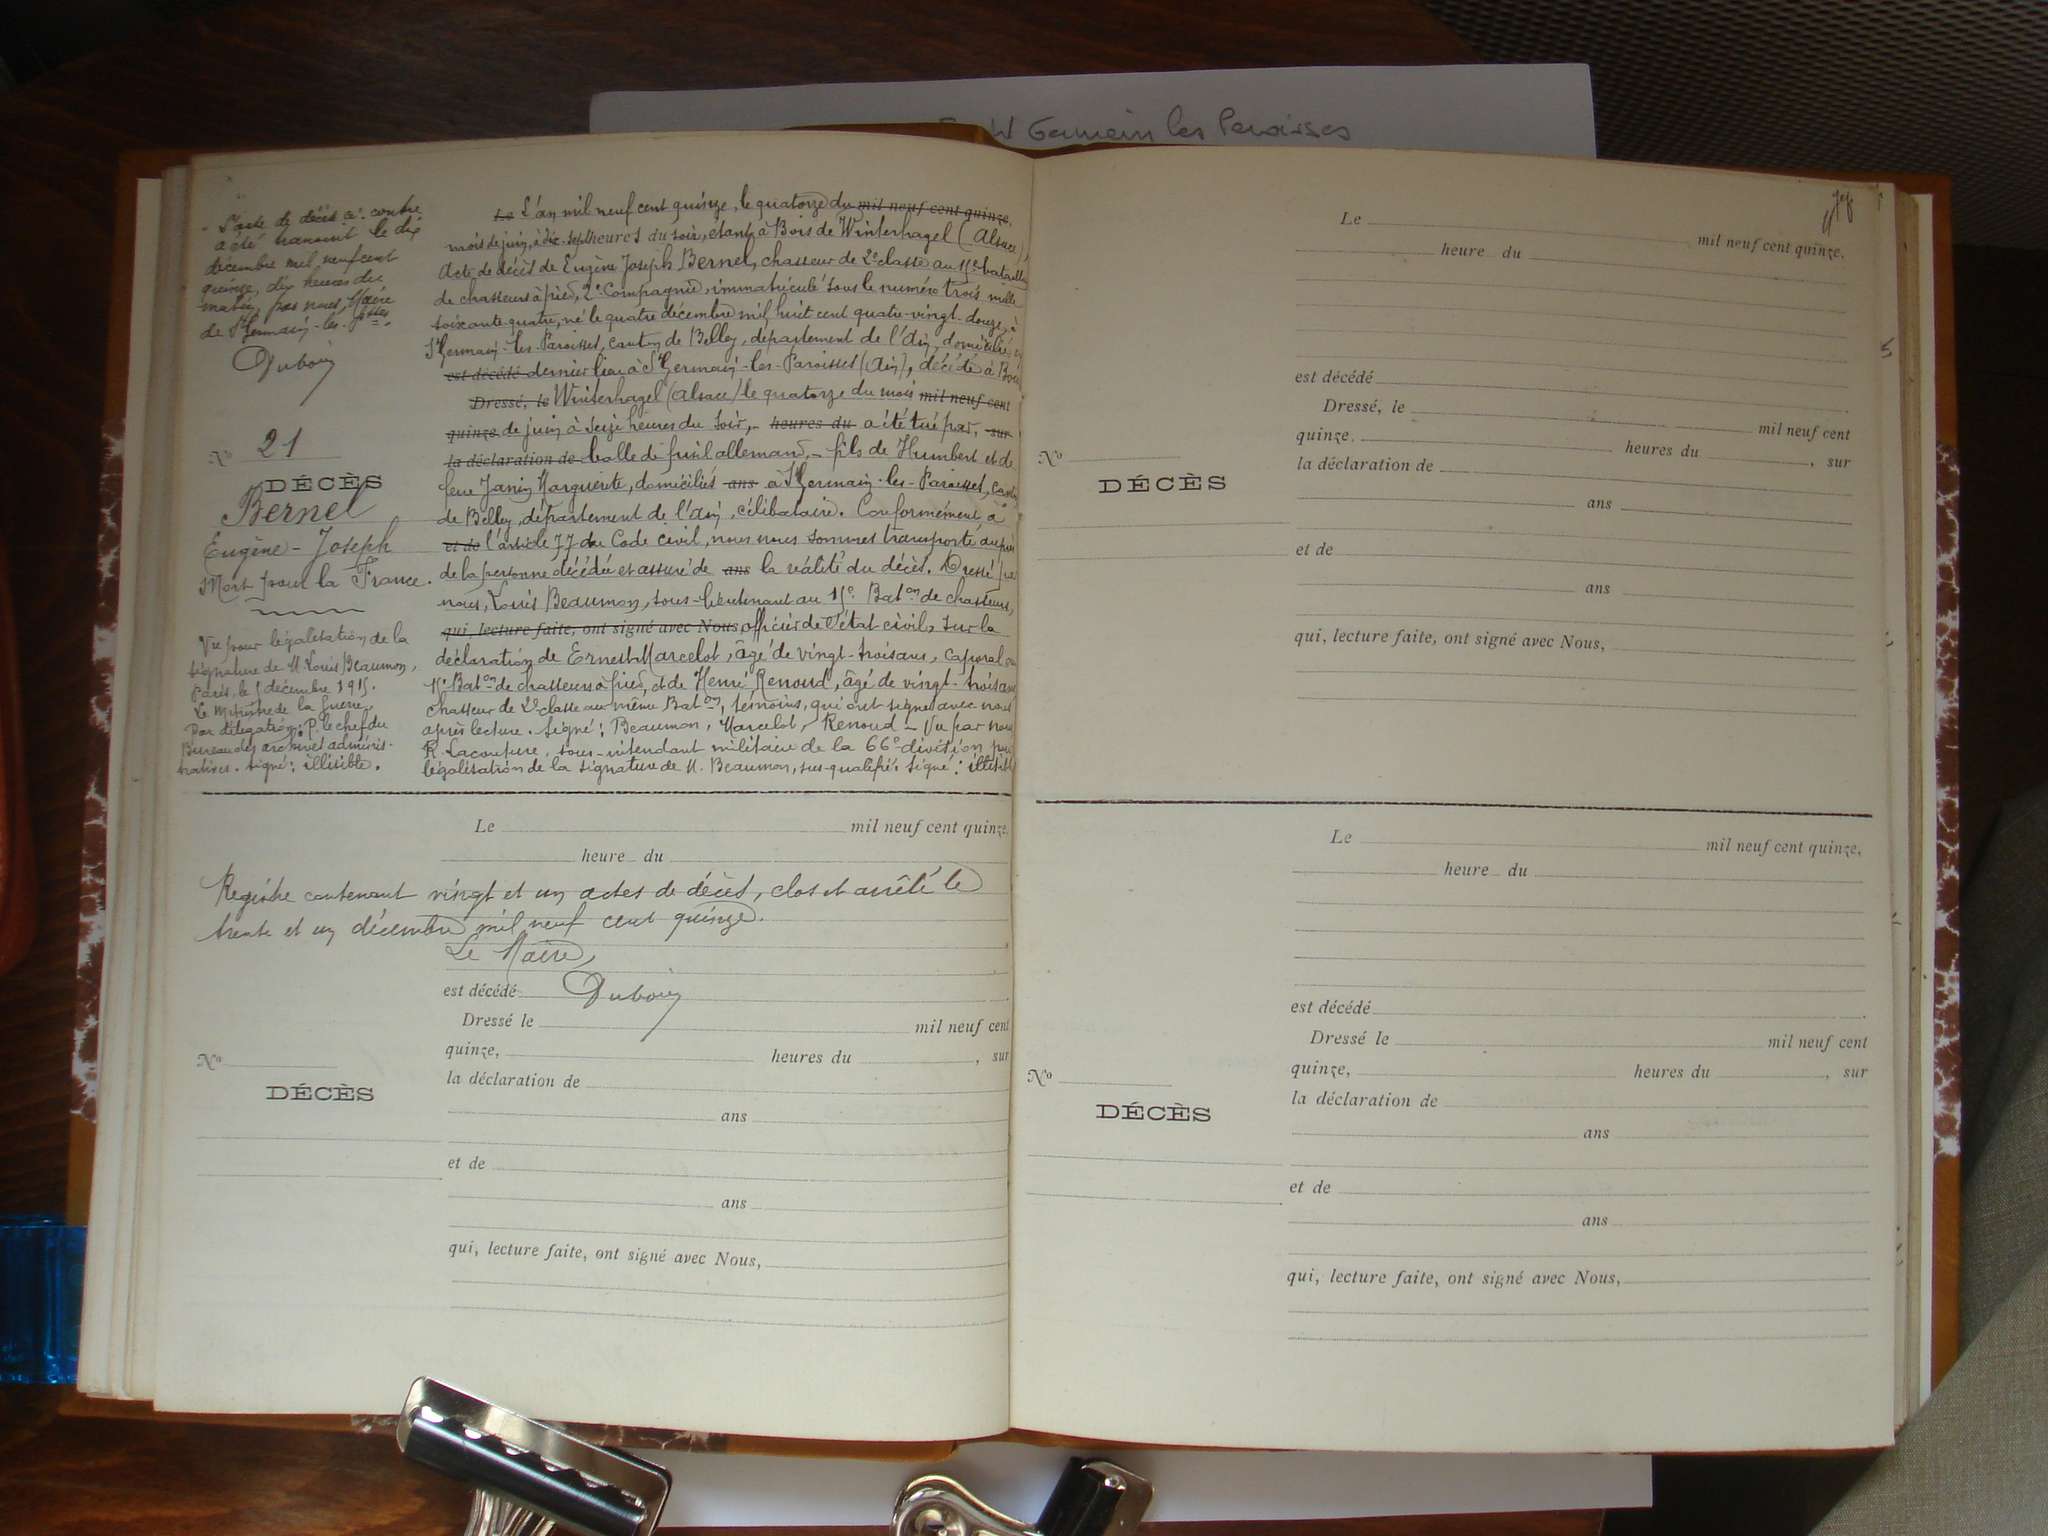 St Germain les Paroisses
L'acte de décès ci-contre
a été transcrit le dix
décembre mil neuf cent
quinze, dix heures du
matin, par nous, Maire
de St Germain-les-Psses.
Nº 21
DÉCÈS
Bernel
Eugène-Joseph
Mort pour la France.
Vu pour légalisation de la
signature de M. Louis Beaumon,
Paris, le 5 décembre 1915.
Le Ministre de la Guerre,
Par délégation: P. le chef du
Bureau des archives adminis-
tratives. Signé: illisible.
Le L'an mil neuf cent quinze, le quatorze du mil neuf cent quinze,
mois de juin, à dix-sept heures du soir, étant à Bois de Winterhagel (Alsace),
Acte de décès de Eugène Joseph Bernel, chasseur de 2e classe au 15e bataillon
de chasseurs à pied, 2e Compagnie, immatriculé sous le numéro trois mille
soixante quatre, né le quatre décembre mil huit cent quatre-vingt-douze, à
St Germain-les-Paroisses, canton de Belley, département de l'Ain, domicilié en
est décédé dernier lieu à St Germain-les-Paroisses (Ain), décédé à Bois
Dressé, le Winterhagel (Alsace) le quatorze du mois mil neuf cent
quinze de juin à seize heures du soir, heures du a été tué par, sur
la déclaration de balle de fusil allemand, fils de Humbert et de
feue Janin Marguerite, domiciliés ans à St Germain-les-Paroisses, canton
de Belley, département de l'ain, célibataire. Conformément à
et de l'article 77 du Code civil, nous nous sommes transporté auprès
de la personne décédée et assuré de ans la réalité du décès. Dressé par
nous, Louis Beaumon, sous-lieutenant au 15e Baton de chasseurs,
qui, lecture faite, ont signé avec Nous officier de l'état civil, sur la
déclaration de Ernest Marcelot, âgé de vingt-trois ans, caporal au
15e Baton de chasseurs à pied, et de Henri Renoud, âgé de vingt-trois ans
chasseur de 2e classe au même Baton, témoins, qui ont signé avec nous
après lecture. Signé: Beaumon, Marcelot, Renoud – Vu par nous
R. Lacouture, sous-intendant militaire de la 66e division pour
légalisation de la signature de M. Beaumon, sus-qualifié. Signé: illisible
Le mil neuf cent quinze,
heure du
Registre contenant vingt et un actes de décès, clos et arrêté le
trente et un décembre mil neuf cent quinze.
Le Maire,
est décédé
Dressé le mil neuf cent
quinze, heures du , sur
Nº
la déclaration de
DÉCÈS
ans
et de
ans
qui, lecture faite, ont signé avec Nous,
Le mil neuf cent quinze,
heure du
est décédé
Dressé, le mil neuf cent
quinze, heures du , sur
Nº
la déclaration de
DÉCÈS
ans
et de
ans
qui, lecture faite, ont signé avec Nous,
Le mil neuf cent quinze,
heure du
est décédé
Dressé le mil neuf cent
quinze, heures du , sur
Nº
la déclaration de
DÉCÈS
ans
et de
ans
qui, lecture faite, ont signé avec Nous,